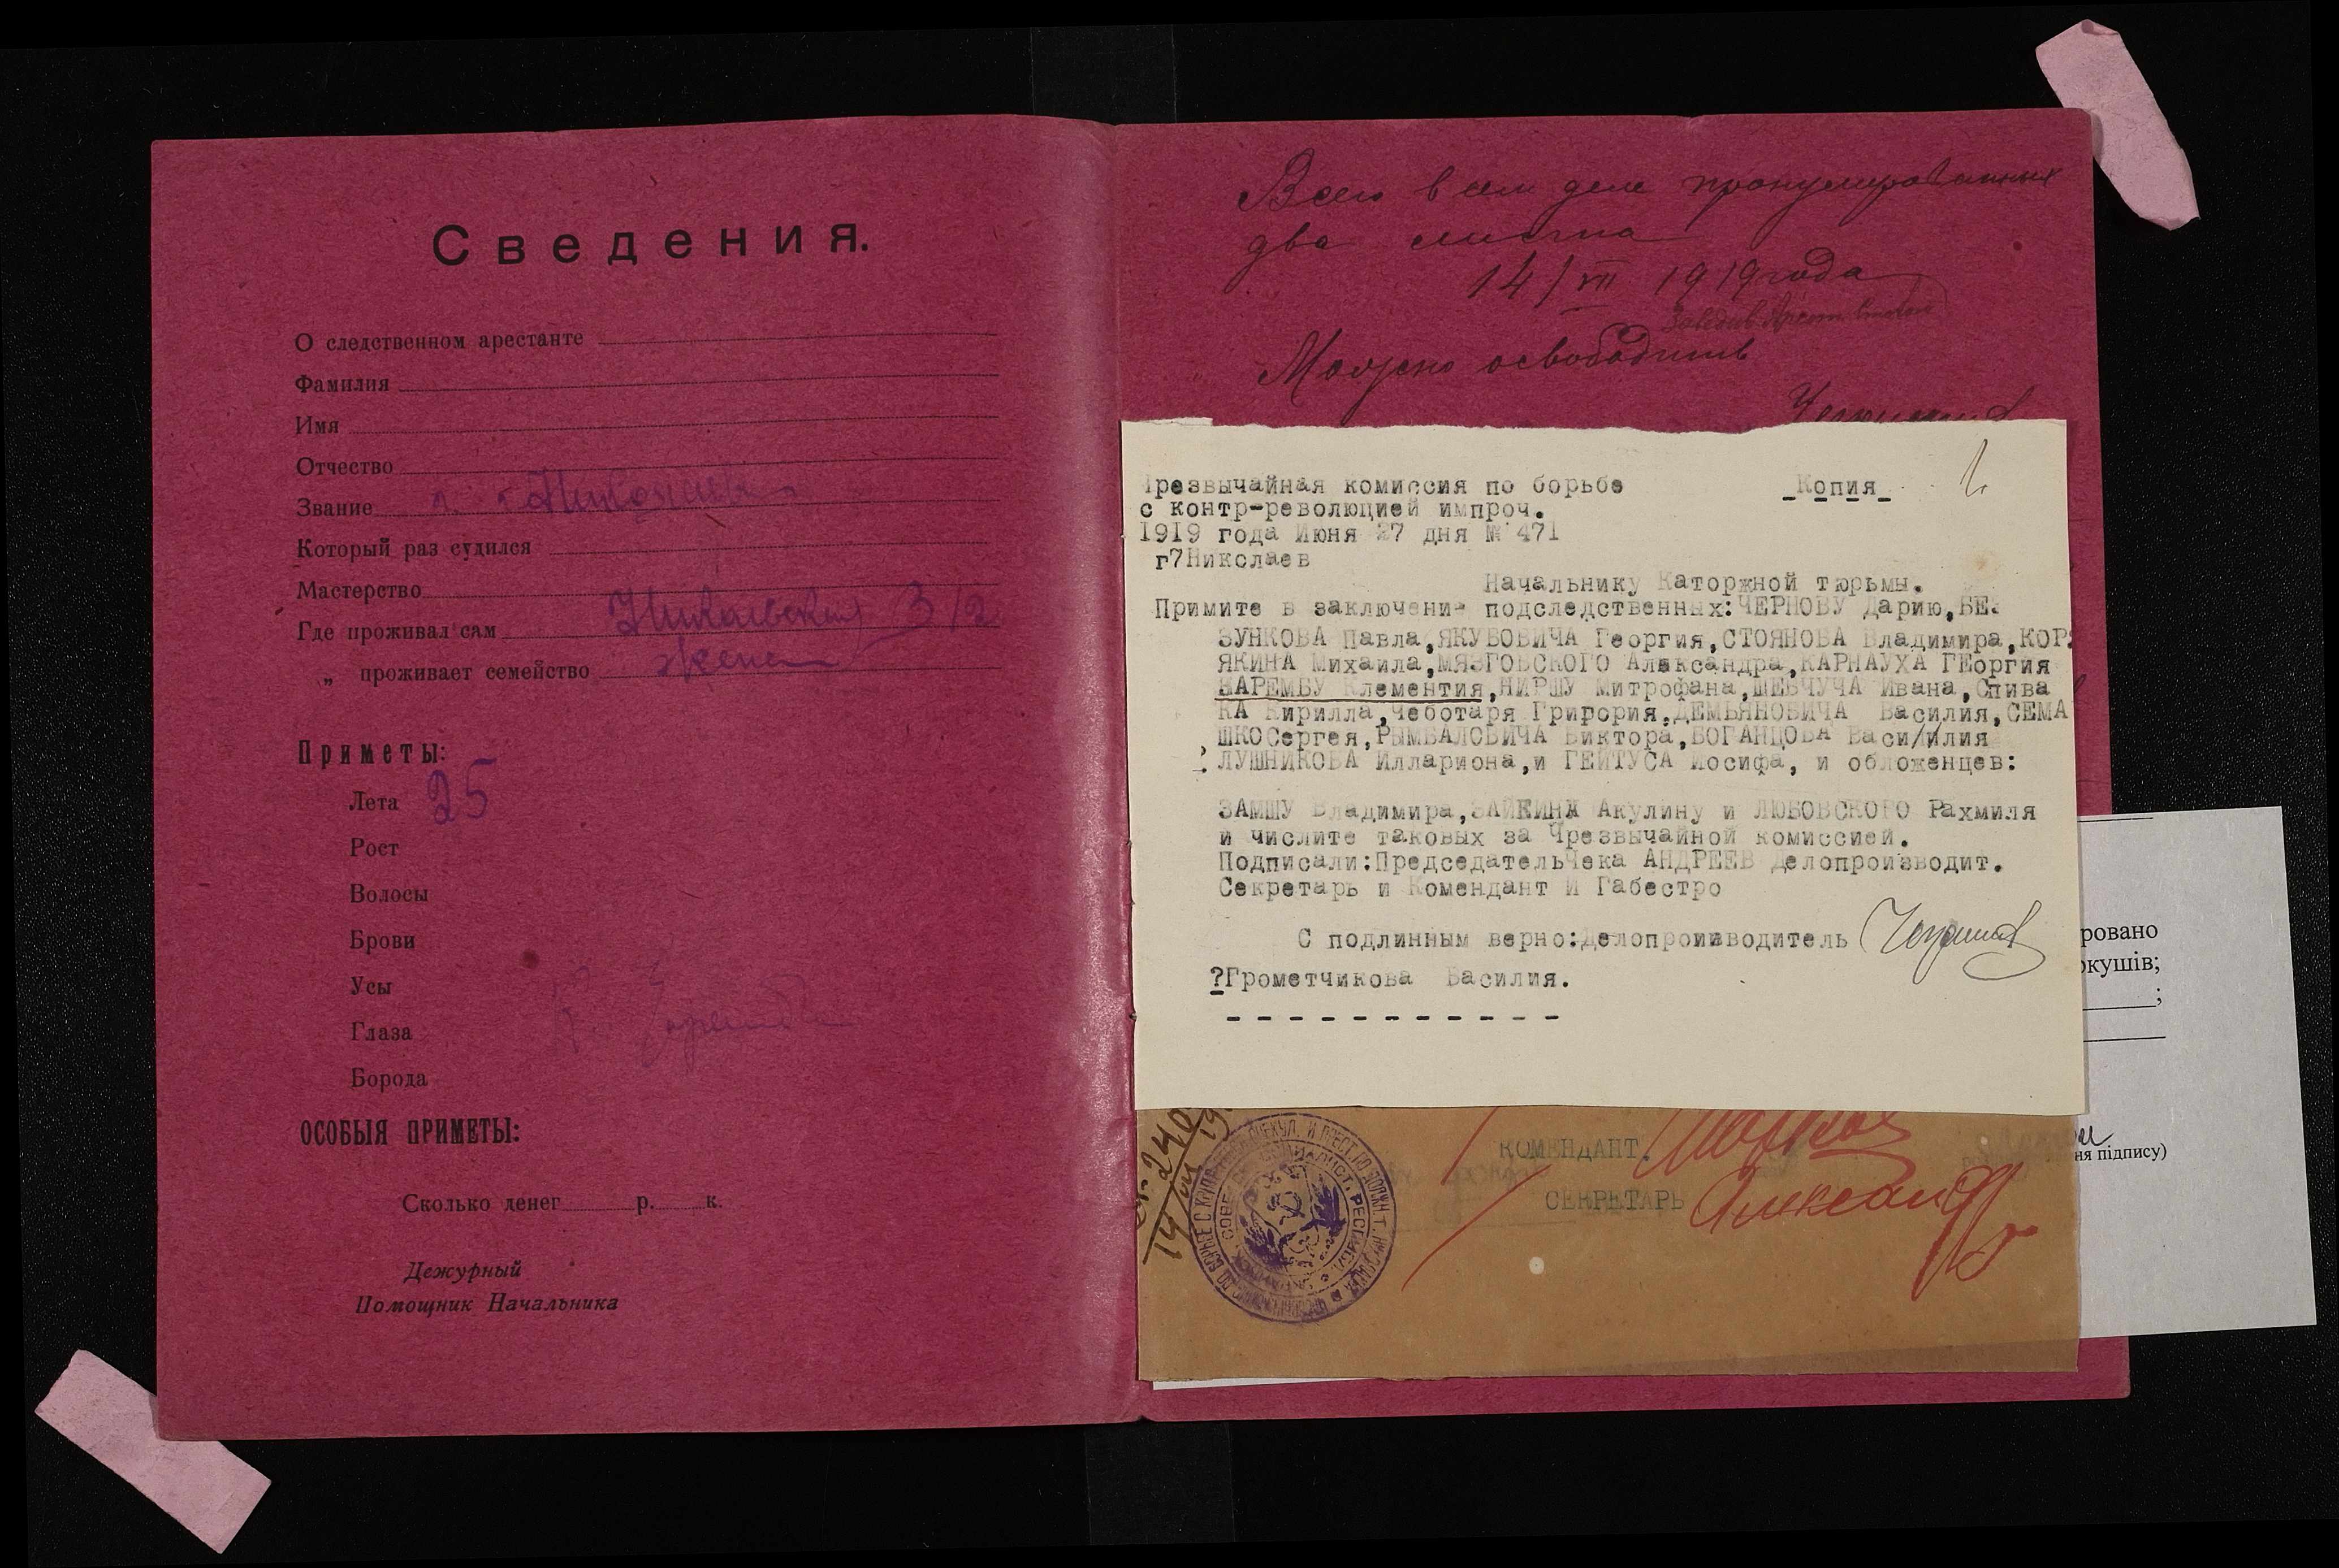 Сведения.
О следственном арестанте
Фамилия
Имя
Отчество
Звание г. Николаев
Который раз судился
Мастерство
Где проживал сам Николаевская 3/2
„ проживает семейство жена
Приметы:
Лета 25
Рост
Волосы
Брови
Усы
Глаза
Борода
ОСОБЫЯ ПРИМЕТЫ:
Сколько денег р. к.
Дежурный
Помощник Начальника
Всего в сем деле пронумерованных
два листа
14/VII 1919 года
Можно освободить
Чрезвычайная комиссия по борьбе _Копия_
с контр-революцией импроч.
1919 года Июня 27 дня № 471
г7Николаев
Начальнику Каторжной тюрьмы.
Примите в заключение подследственных:ЧЕРНОВУ Дарию,БЕЗ
ЗУНКОВА Павла,ЯКУБОВИЧА Георгия,СТОЯНОВА Владимира,КОРЯ
ЯКИНА Михаила,МЯЗГОВСКОГО Александра,КАРНАУХА ГЕоргия
ЗАРЕМБУ Клементия,НИРШУ Митрофана,ШЕВЧУЧА Ивана,Спива
КА Кирилла,Чеботаря Григория,ДЕМЬЯНОВИЧА Василия,СЕМА
ШКОСергея,РЫМБАЛОВИЧА Виктора,БОГАНЦОВА Васи/илия
ЛУШНИКОВА Иллариона,и ГЕЙТУСА Иосифа, и обложенцев:
ЗАМШУ Владимира,ЗАЙКИНУ Акулину и ЛЮБОВСКОГО Рахмиля
и числите таковых за Чрезвычайной комиссией.
Подписали:ПредседательЧека АНДРЕЕВ Делопроизводит.
Секретарь и Комендант И Габестро
С подлинным верно:Делопроизводитель
?Грометчикова Василия.
- - - - - - - - - - - -
№ 240
14/VII 19
КОМЕНДАНТ.
СЕКРЕТАРЬ Александр
ровано
окушів;
;
ня підпису)